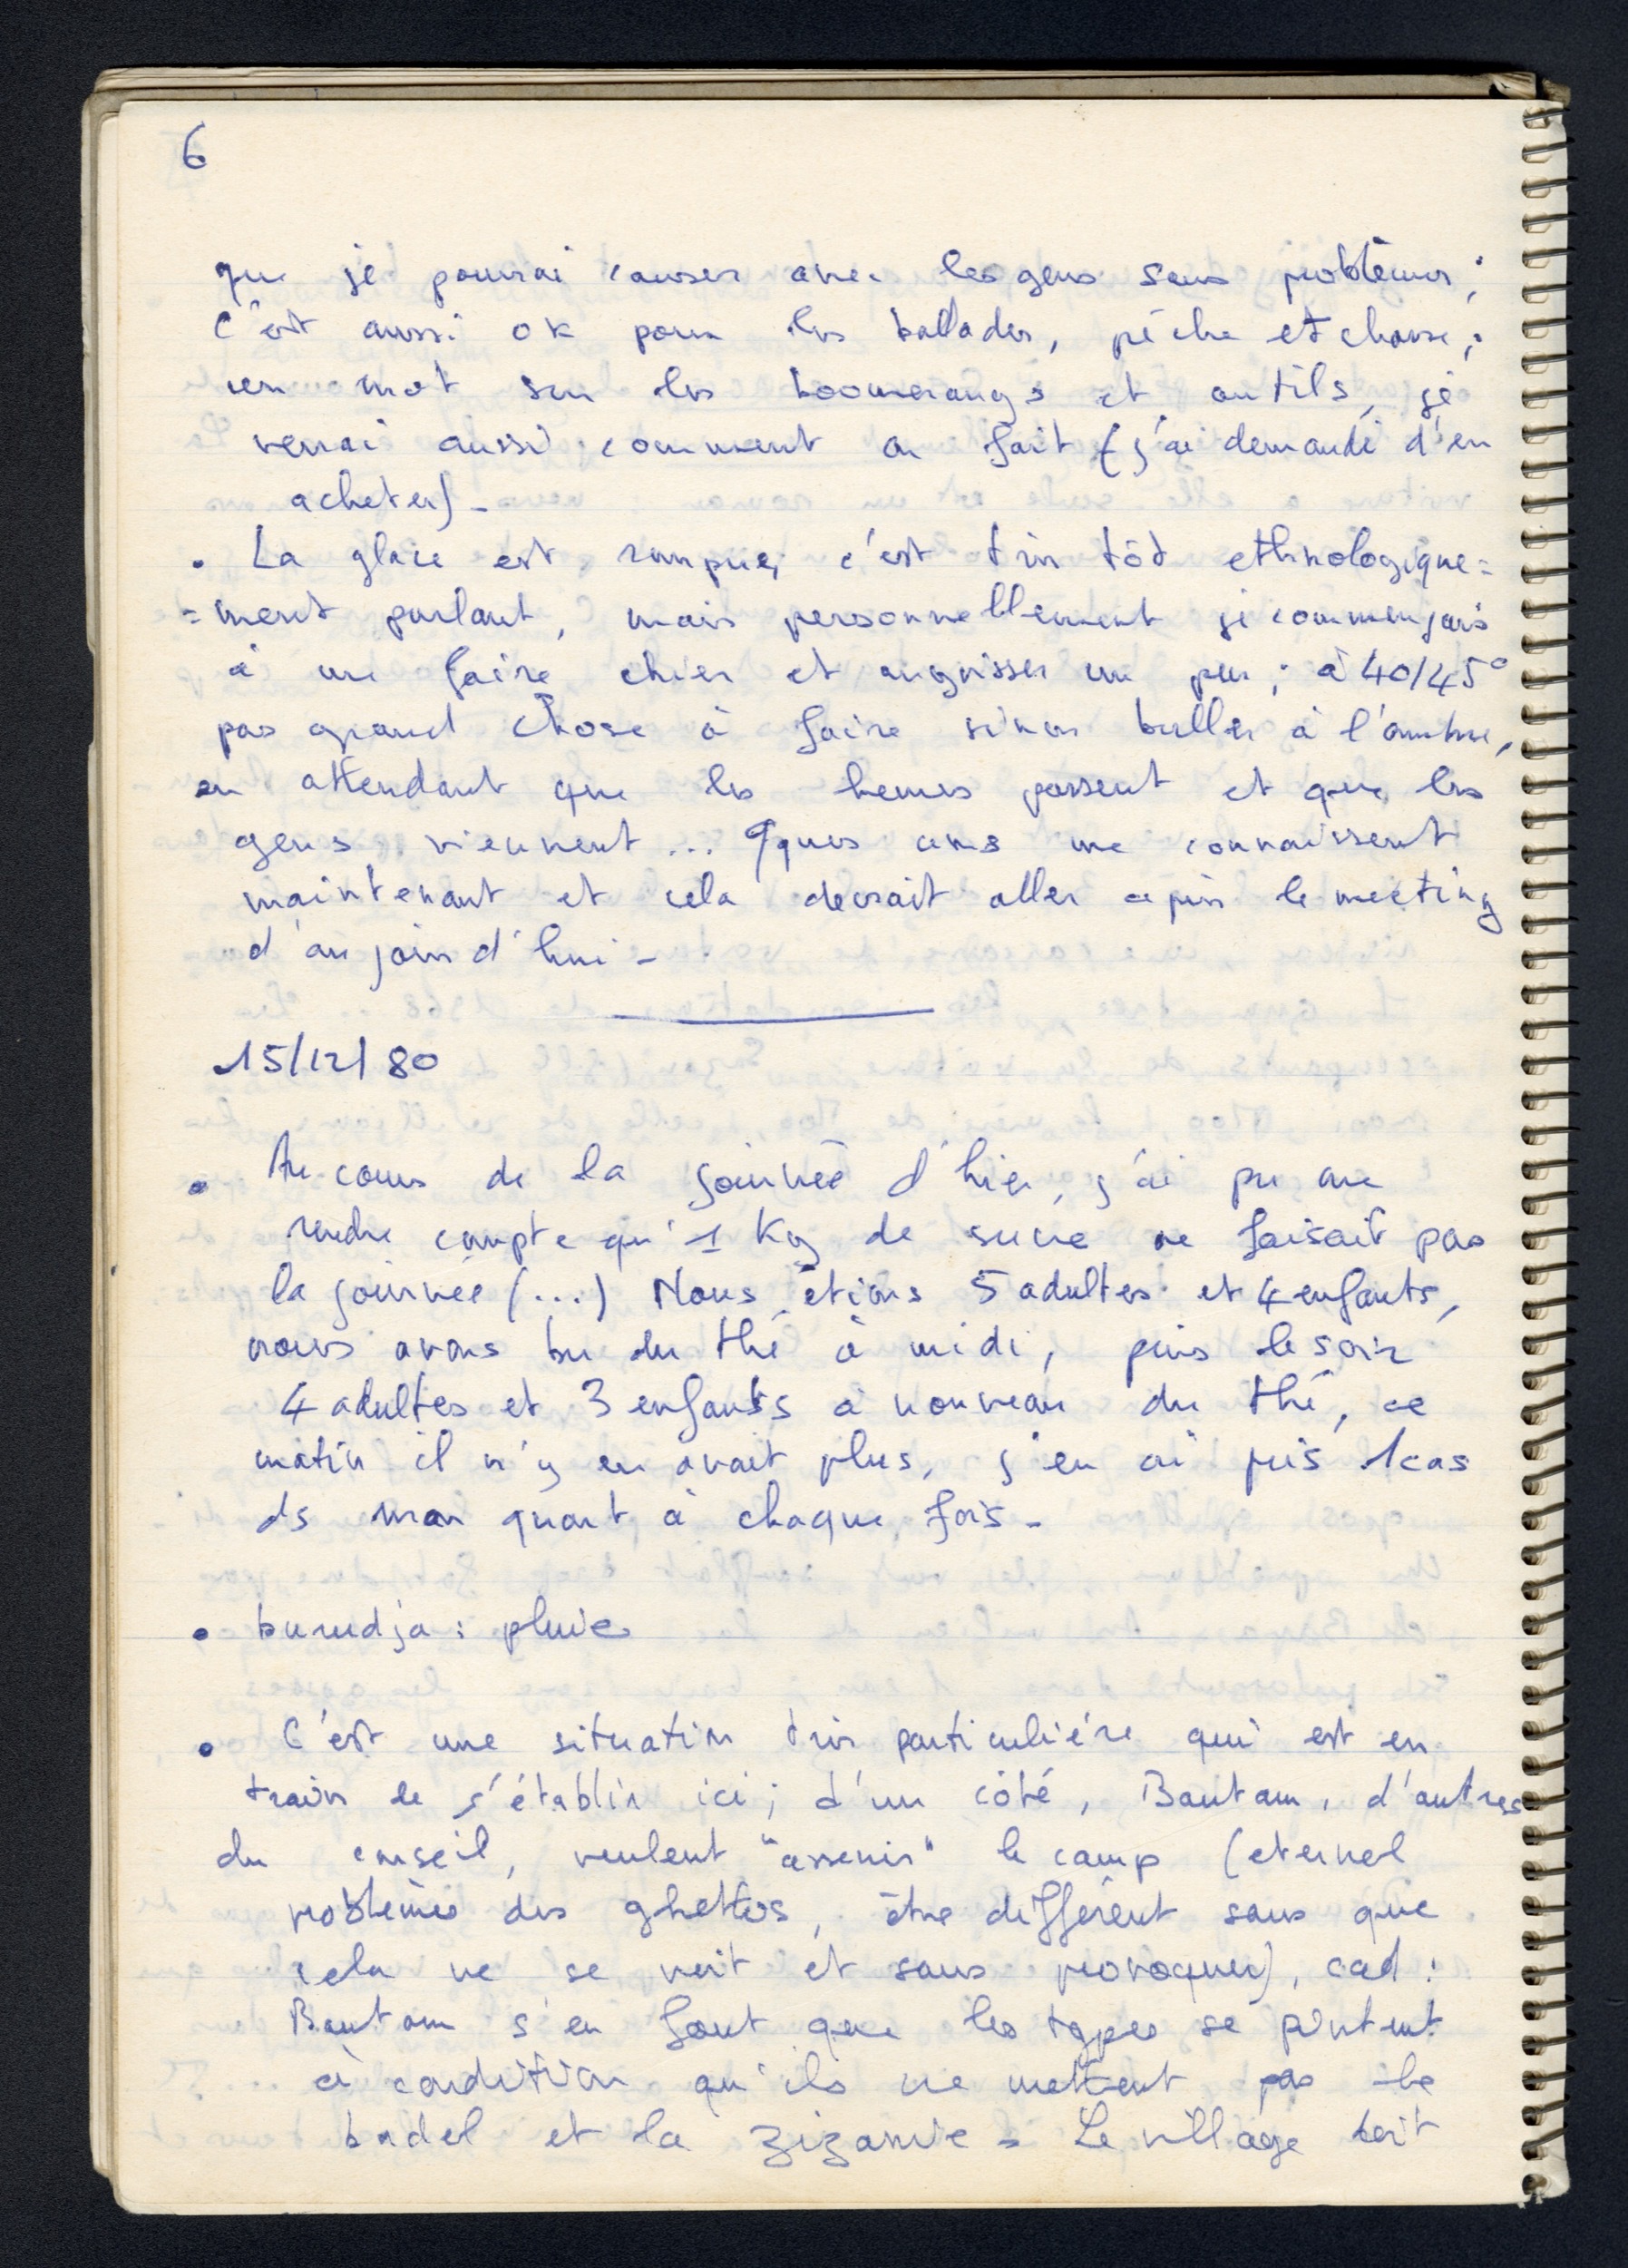 6
que je pourrai causer avec les gens sans problèmes ;
C'est aussi ok pour les ballades, pêche et chasse ;
un mot sur les boomerangs et outils, je
verrai aussi comment on fait (j'ai demandé d'en
acheter) -
. La glace est rompue, c'est très tôt ethnologique=
=ment parlant, mais personnellement je commençais
à me faire chier et angoisser un peu ; à 40/45°
pas grand chose à faire sinon buller à l'ombre,
en attendant que les heures passent et que les
gens viennent ... Qques uns me connaissent
maintenant et cela devrait aller après le meeting
d'aujourd'hui -
15/12/80
• Au cours de la journée d'hier, j'ai pu me
rendre compte qu'1 Kg de sucre ne faisait pas
la journée (...) Nous étions 5 adultes et 4 enfants,
nous avons bu du thé à midi, puis le soir
4 adultes et 3 enfants à nouveau du thé, ce
matin il n'y en avait plus, j'en ai pris 1 cas
ds mon quart à chaque fois -
• burudja : pluie
• C'est une situation très particulière qui est en
train de s'établir ici ; d'un côté, Bantam, d'autres
du conseil, veulent "assenir" le camp (eternel
problème des ghettos, être différent sans que
cela ne se voit et sans provoquer), cad :
Bantam s'en fout que les types se pintent
à condition qu'ils ne mettent pas le
bordel et la zizanie - Le village doit